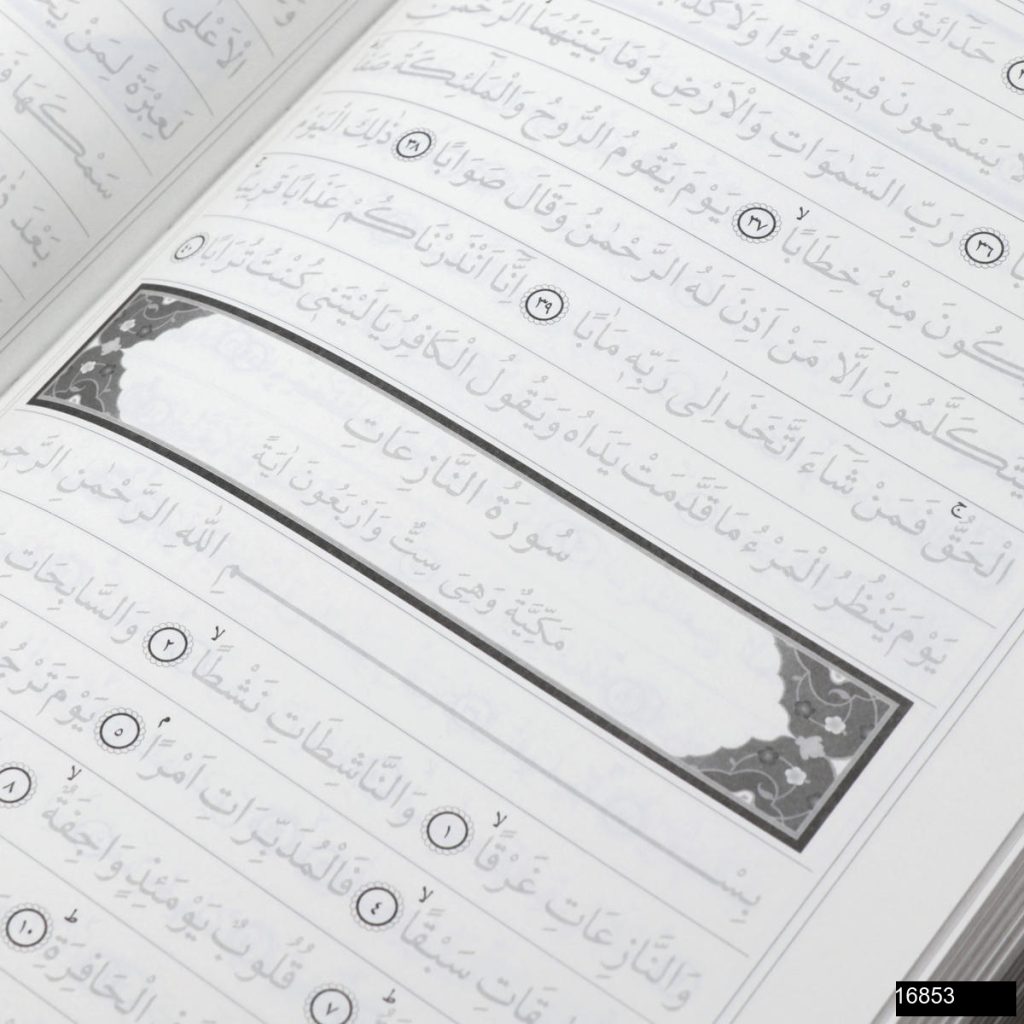 حَدَائِقَ
لَا يَسْمَعُونَ فِيهَا لَغْوًا وَلَا
٣٦ رَبِّ السَّمٰوَاتِ وَالْاَرْضِ وَمَا بَيْنَهُمَا الرَّحْمٰنِ
مِنْهُ خِطَابًا ٣٧ يَوْمَ يَقُومُ الرُّوحُ وَالْمَلٰٓئِكَةُ صَفًّا
يَتَكَلَّمُونَ اِلَّا مَنْ اَذِنَ لَهُ الرَّحْمٰنُ وَقَالَ صَوَابًا ٣٨ ذٰلِكَ الْيَوْمُ
الْحَقُّ فَمَنْ شَٓاءَ اتَّخَذَ اِلٰى رَبِّهِ مَاٰبًا ٣٩ اِنَّٓا اَنْذَرْنَاكُمْ عَذَابًا قَرِيبًا
يَوْمَ يَنْظُرُ الْمَرْءُ مَا قَدَّمَتْ يَدَاهُ وَيَقُولُ الْكَافِرُ يَا لَيْتَنِى كُنْتُ تُرَابًا ٤٠
سُورَةُ النَّازِعَاتِ
مَكِّيَّةٌ وَهِىَ سِتٌّ وَاَرْبَعُونَ اٰيَةً
بِسْمِ اللّٰهِ الرَّحْمٰنِ الرَّحِيمِ
وَالنَّازِعَاتِ غَرْقًا ١ وَالنَّاشِطَاتِ نَشْطًا ٢ وَالسَّابِحَاتِ
سَبْقًا ٤ فَالْمُدَبِّرَاتِ اَمْرًا ٥ يَوْمَ تَرْجُفُ
٧ قُلُوبٌ يَوْمَئِذٍ وَاجِفَةٌ ٨
الْحَافِرَةِ ١٠
الْاَعْلٰى
لَعِبْرَةً لِمَنْ
سَمْكَهَا
بَعْدَ
16853